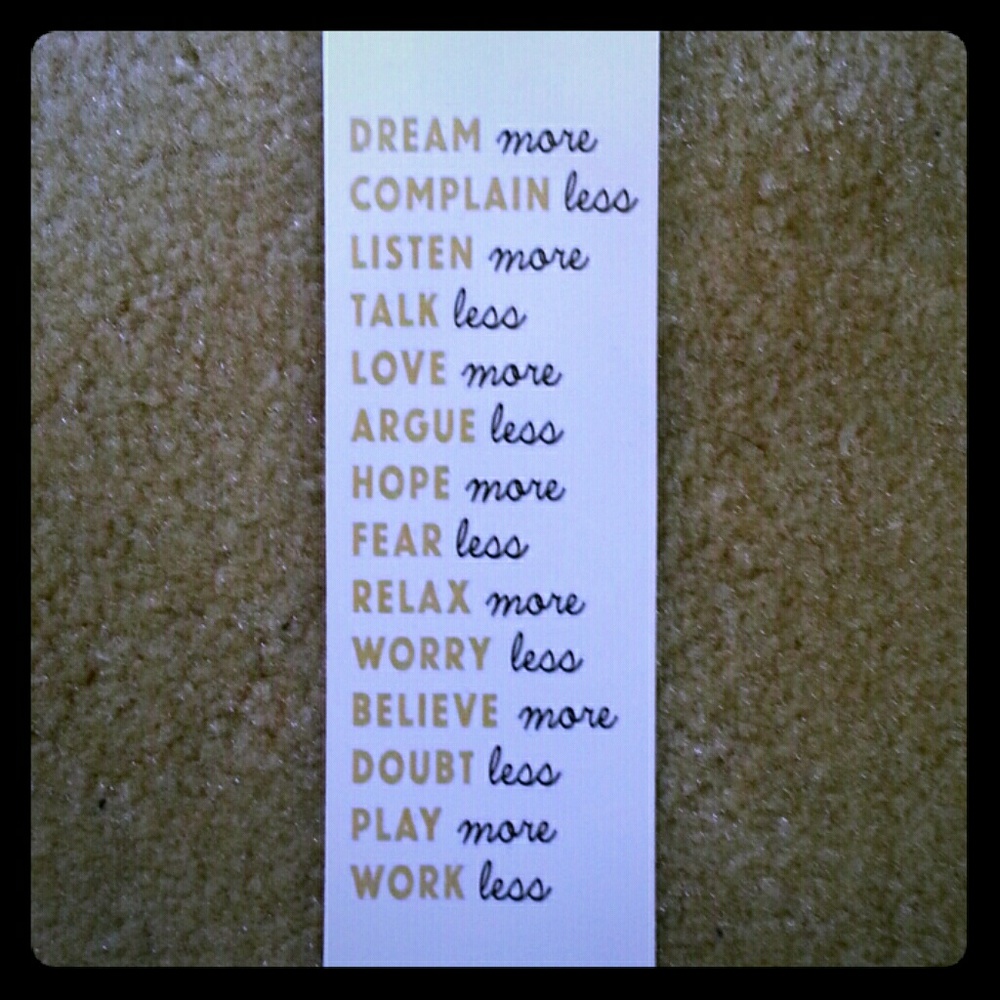 DREAM more
COMPLAIN less
LISTEN more
TALK less
LOVE more
ARGUE less
HOPE more
FEAR less
RELAX more
WORRY less
BELIEVE more
DOUBT less
PLAY more
WORK less